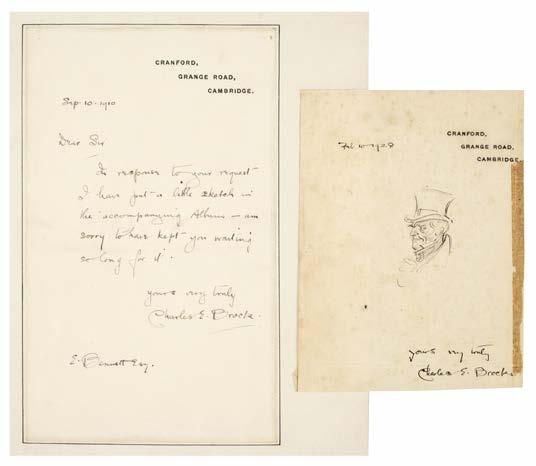 CRANFORD,
GRANGE ROAD,
CAMBRIDGE.
Sep. 10. 1910
Dear Sir
In response to your request
I have put a little sketch in
the accompanying Album – am
sorry to have kept you waiting
so long for it.
yours very truly
Charles E. Brock.
E. Bennett Esq.
CRANFORD,
GRANGE ROAD,
CAMBRIDGE
Feb 10 1928
yours very truly
Charles E. Brock.